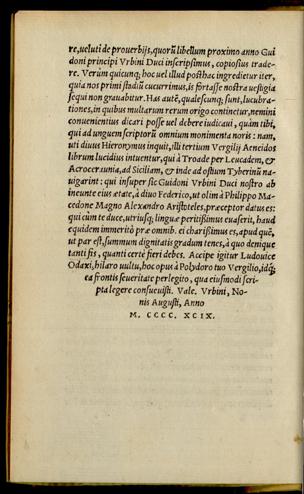 re, ueluti de prouerbijs, quorũ libellum proximo anno Gui
doni principi Vrbini Duci inscripsimus, copiosius trade-
re. Verùm quicunq; hoc uel illud posthac ingredietur iter,
quia nos primi stadiũ cucurrimus, is fortasse nostra uestigia
sequi non grauabitur. Has autẽ, qualescunq; sunt, lucubra-
tiones, in quibus multarum rerum origo continetur, nemini
conuenientius dicari posse uel debere iudicaui, quàm tibi,
qui ad unguem scriptorũ omnium monimenta noris: nam,
uti diuus Hieronymus inquit, illi tertium Vergilij Aeneidos
librum lucidius intuentur, qui à Troade per Leucadem, &
Acroceraunia, ad Siciliam, & inde ad ostium Tyberinũ na-
uigarint: qui insuper sic Guidoni Vrbini Duci nostro ab
ineunte eius ætate, à diuo Federico, ut olim à Philippo Ma-
cedone Magno Alexandro Aristoteles, præceptor datus es:
qui cùm te duce, utriusq; linguæ peritißimus euaserit, haud
equidem immeritò præ omnib. ei charißimus es, apud quẽ,
ut par est, summum dignitatis gradum tenes, à quo denique
tanti fis, quanti certè fieri debes. Accipe igitur Ludouice
Odaxi, hilaro uultu, hoc opus à Polydoro tuo Vergilio, idq;
ea frontis seueritate perlegito, qua eiusmodi scri-
pta legere consueuisti. Vale. Vrbini, No-
nis Augusti, Anno
M. CCCC. XCIX.